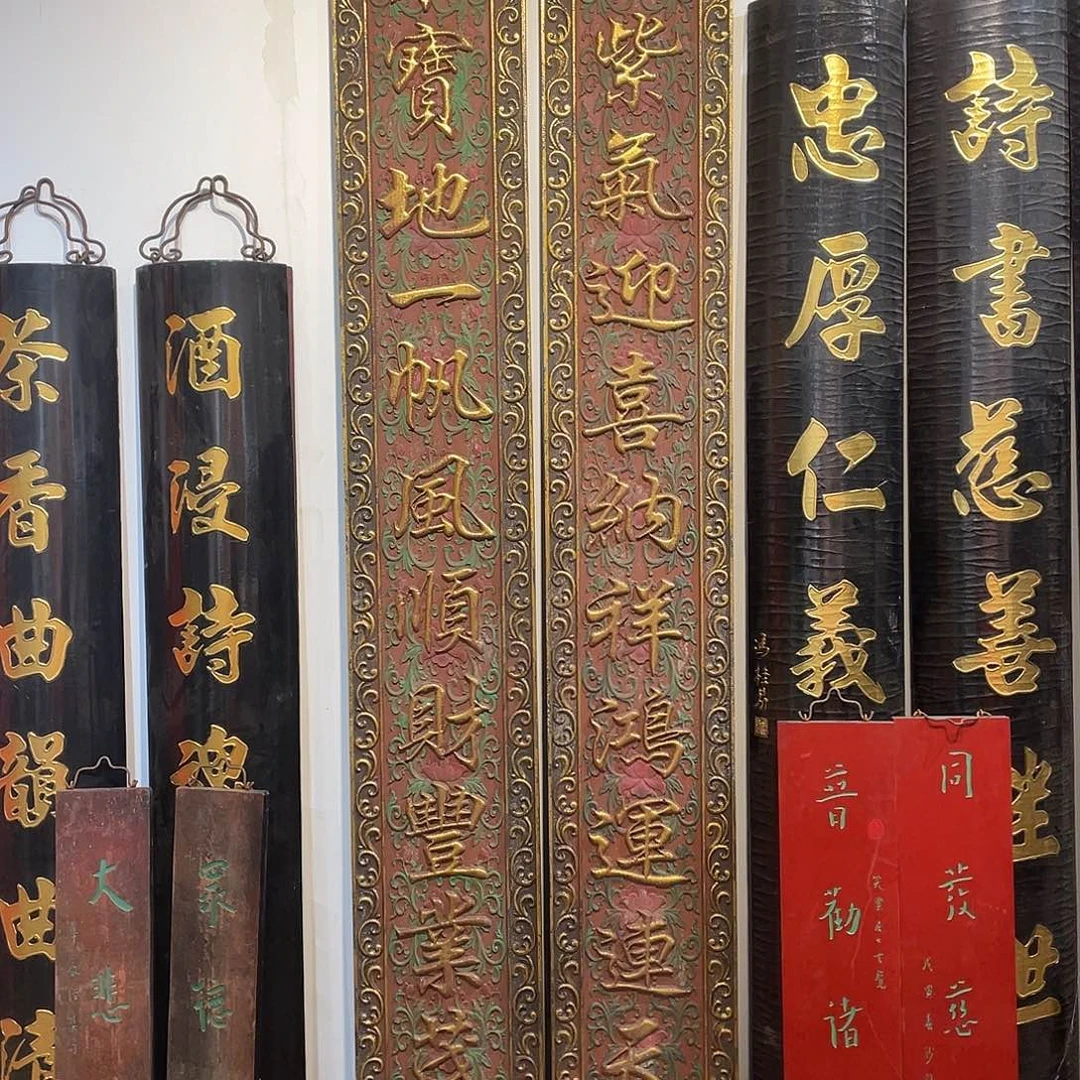 詩書慈善世
忠厚仁義
馮桂芬
同發慈
普勸諸
紫氣迎喜納祥鴻運連天
寶地一帆風順財豐業茂
酒浸詩
茶香曲韻曲清
大悲